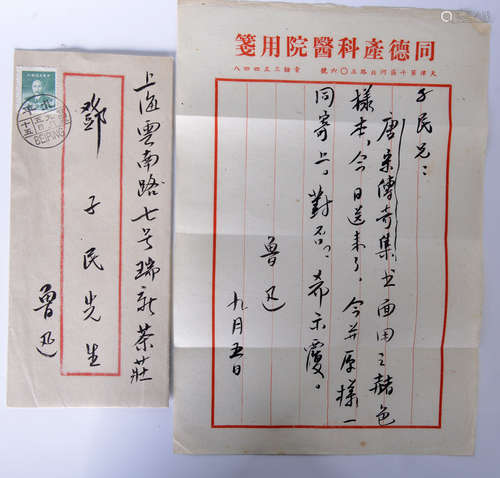 上海雲南路七号瑞新茶莊
鄧子民先生
魯迅
北平
十五
BEIPING
同德產科醫院用箋
天津第十區河北路三〇六號　電話二三五四四八
子民兄：
唐宋傳奇集書面用之赭色
樣本，今日送来了。今并原樣一
同寄上。對否？希示覆。
魯迅
九月五日